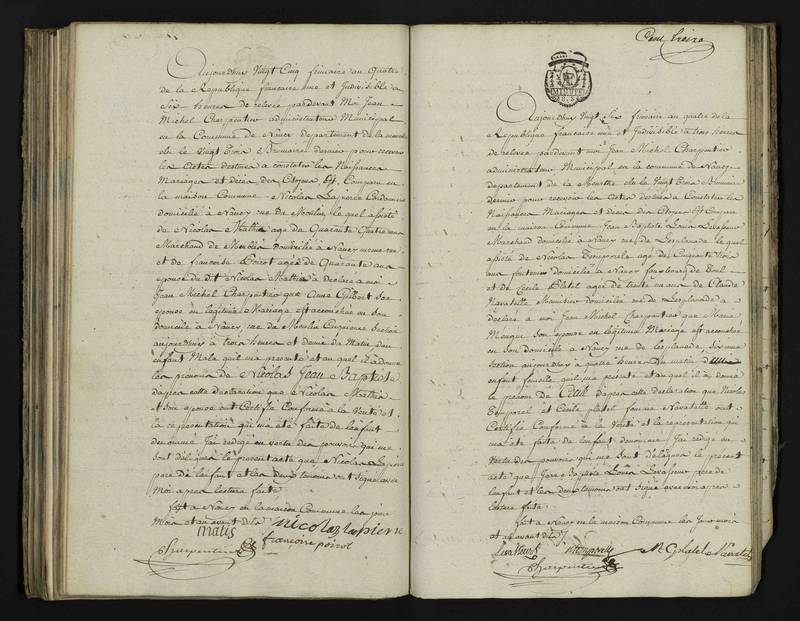 Aujourdhuy Vingt Cinq frimaire au Quatre
de la République francaise une et Indivisible a
Six heures de relevée pardevant Moi Jean
Michel Charpentier administrateur Municipal
en la Commune de Nancy département de la meurthe
élu le Vingt Trois Brumaire dernier pour recevoir
les Actes destinés a constater les Naissances
Mariages et décès des Citoyens, Est Comparu en
la maison Commune Nicolas Lapierre Cordonnier
domicilié à Nancy rue du Moulin lequel assisté
de Nicolas Mathis agé de Quarante Quatre ans
Marchand de domicilié à Nancy meme rue
et de francoise Poirot agée de Quarante ans
épouse du dit Nicolas Mathis à déclaré a moi
Jean Michel Charpentier que Anne Gilbert son
épouse en légitime Mariage est accouchée en Son
domicile a Nancy rue du Moulin Cinquieme Section
aujourdhuy à trois heures et demie du Matin d'un
enfant Male qu'il ma présenté et auquel il a donné
les prenoms de Nicolas Jean Baptiste
d'apres cette déclaration que Nicolas Mathis
et Son épouse ont Certifié Conforme a la Vérité et
la représentation qui ma été faite de l'enfant
dénommé J'ai redigé en vertu des pouvoirs qui me
sont délégués le present acte que Nicolas Lapierre
pere de l'enfant et les deux temoins ont signé avec
Moi apres lecture faite
fait a Nancy en la maison Commune les jour
Mois et an avant dits
nicolas lapierre
matis
francoise poirot
Charpentier
Cecile Croizo
MINUTE
Aujourdhuy Vingt Six frimaire au quatre de la
République francaise une et Indivisible à trois heures
de relevée pardevant moi Jean Michel Charpentier
administrateur Municipal en la commune de Nancy
département de la Meurthe élu le Vingt Trois Brumaire
dernier pour recevoir les Actes destinés a Constater les
Naissances Mariages et décès des Citoyens Est Comparu
en la maison Commune Jean Baptiste Louis Levasseur
Marchand domicilié à Nancy rue de l'esplanade lequel
assisté de Nicolas agé de Cinquante trois
ans domicilié a Nancy fauxbourg de
et de Cecile Platel agée de trente un ans de Claude
Navatelle domicilié rue de l'esplanade a
déclaré a moi Jean Michel Charpentier que Marie
Mengin Son épouse en légitime Mariage est accouchée
en Son domicile a Nancy rue de l'esplanade, Sixieme
Section aujourdhuy a quatre heures du matin d'une
enfant femelle qu'il ma présenté et auquel il a donné
le prénom de Cecile d'apres cette déclaration que Nicolas
et Cecile platel femme Navatelle ont
Certifié Conforme a la Vérité et la representation qui
ma été faite de l'enfant dénommé J'ai redigé en
Vertu des pouvoirs qui me sont délégués le présent
acte que Jean Baptiste Louis Levasseur pere de
l'enfant et les deux temoins ont signé avec moi apres
lecture faite
fait a Nancy en la maison Commune les Jour mois
et an avant dits
Levasseur
M C platel Navatel
Charpentier